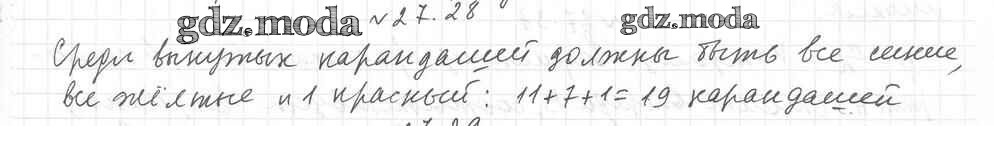 gdz.moda №27.28 gdz.moda
Среди вынутых карандашей должны быть все синие,
все жёлтые и 1 красный: 11+7+1=19 карандашей